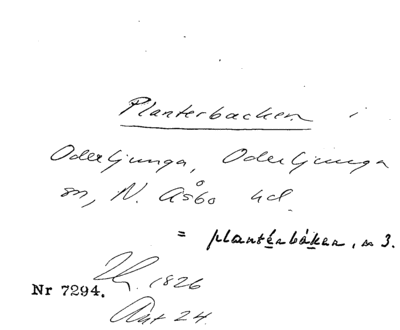 Planterbacken i
Oderljunga, Oderljunga
sn, N. Åsbo hd.
= plantérbáken, n 3.
1826
Nr 7294.
Ant 24.